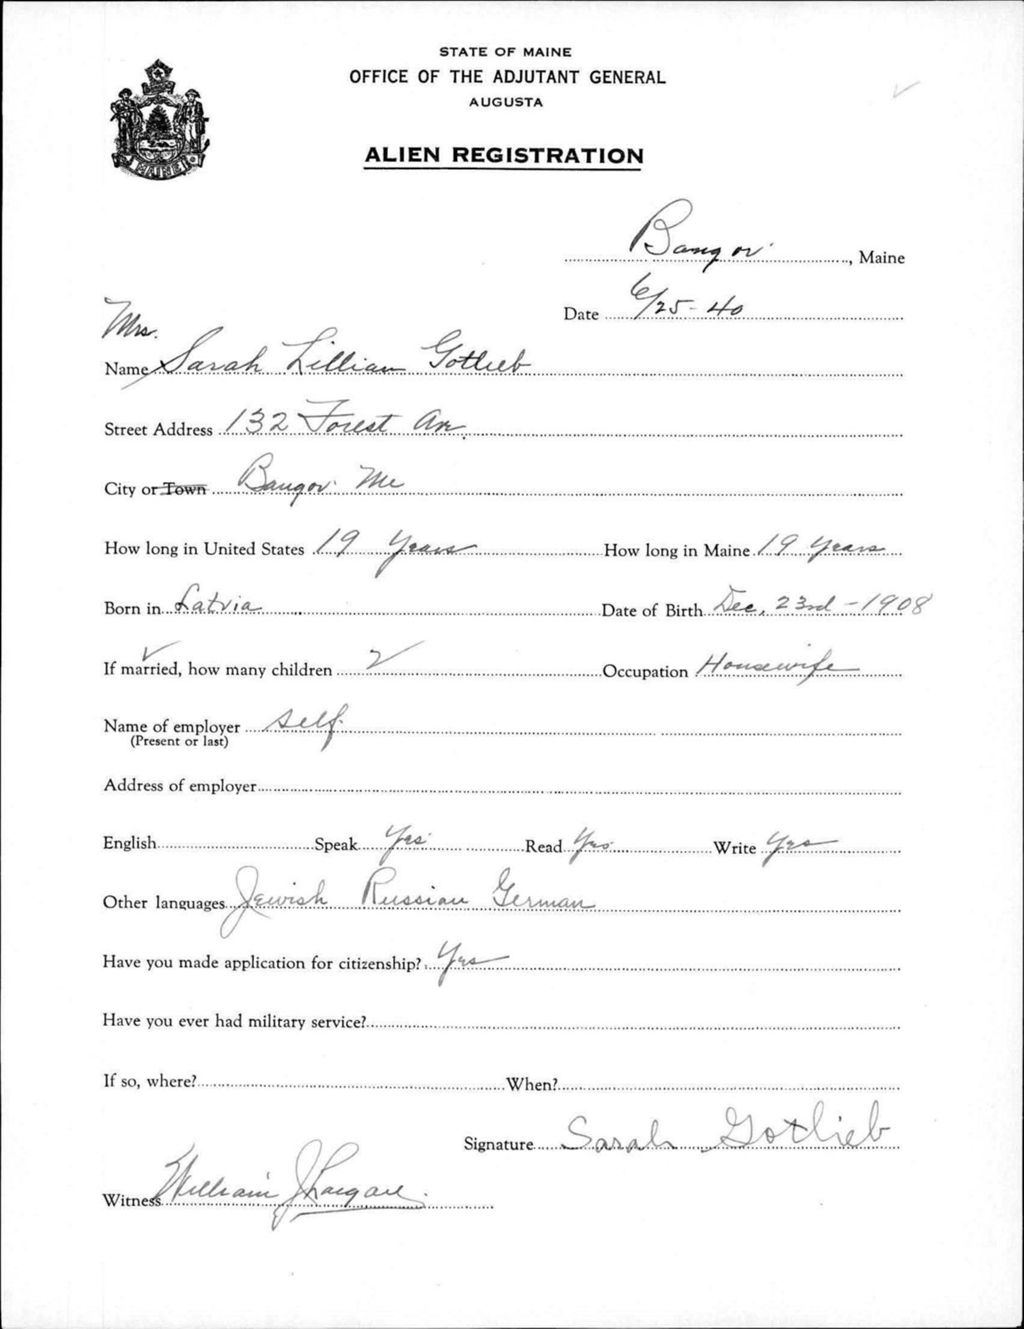 STATE OF MAINE
OFFICE OF THE ADJUTANT GENERAL
AUGUSTA
ALIEN REGISTRATION
MAINE
Bangor, Maine
Date 6/25-40
Mrs.
Name Sarah Lillian Gotlieb
Street Address 132 Forest Av.
City or Town Bangor Me
How long in United States 19 Years How long in Maine 19 Years
Born in Latvia Date of Birth Dec. 23rd - 1908
If married, how many children 2 Occupation Housewife
Name of employer Self.
(Present or last)
Address of employer
English Speak Yes Read Yes Write Yes
Other languages Jewish Russian German
Have you made application for citizenship? Yes
Have you ever had military service?
If so, where? When?
Signature Sarah Gotlieb
Witness William J